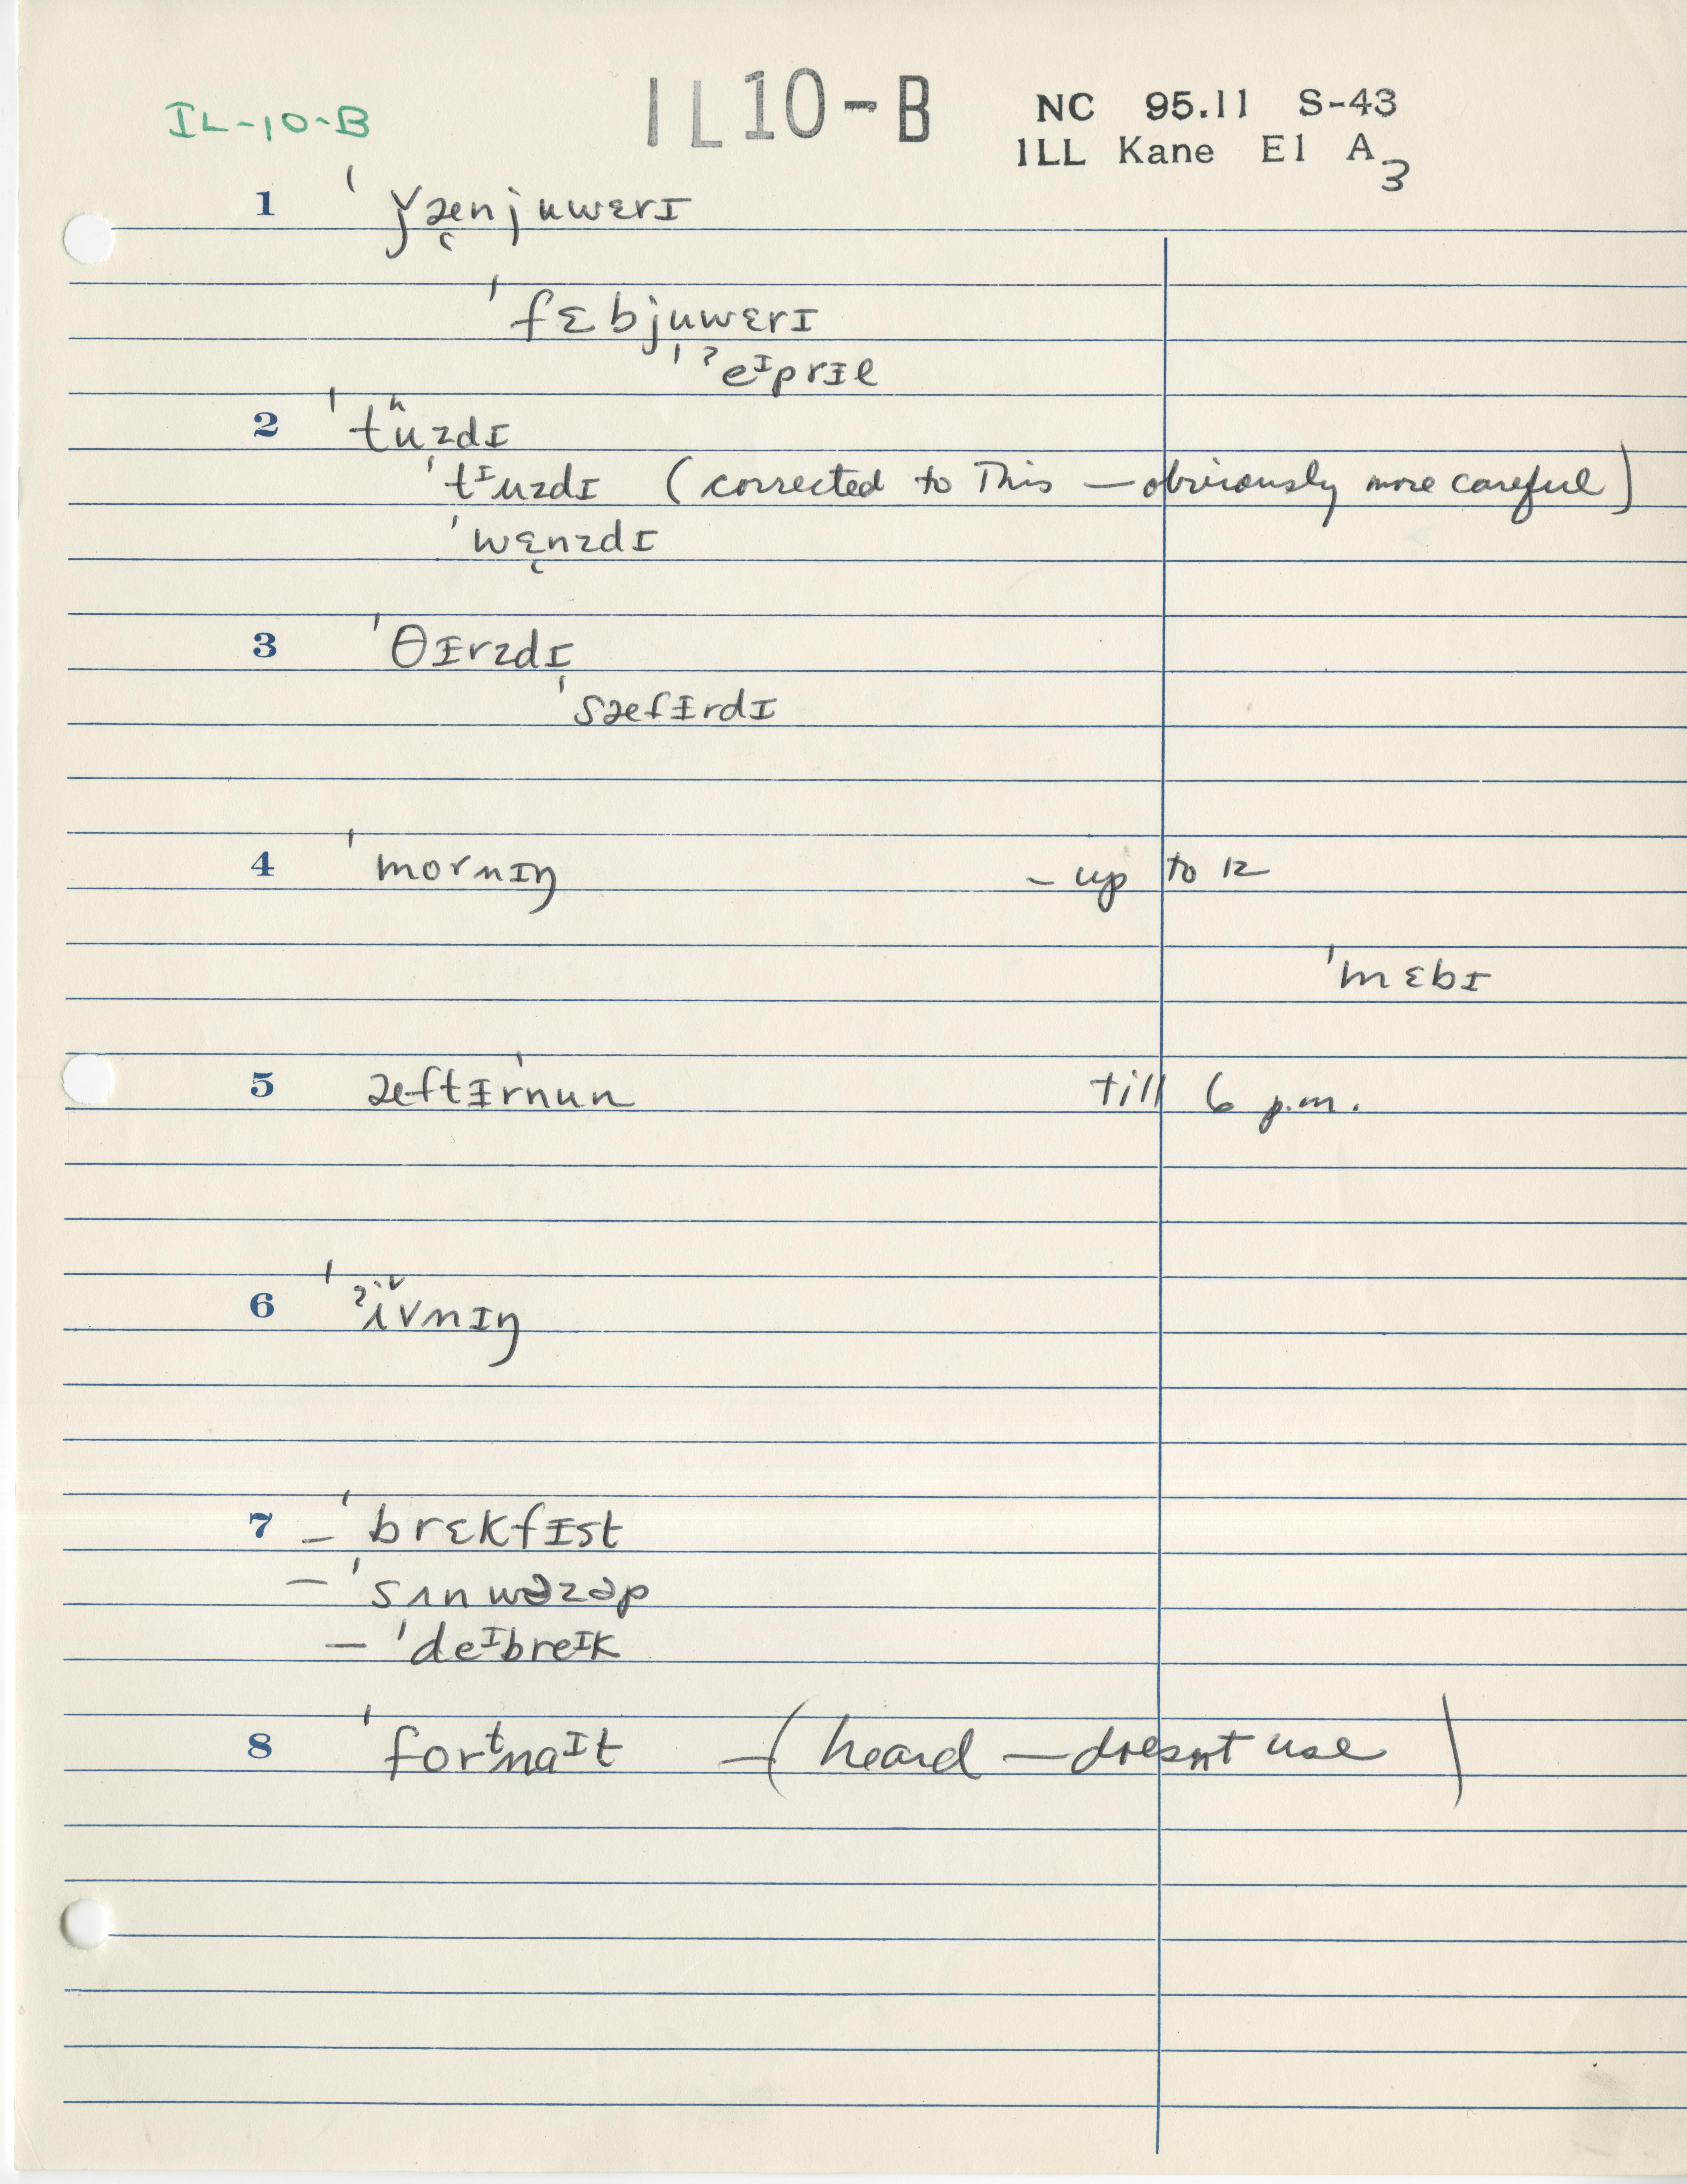 IL-10-B
IL10-B
NC 95.11 S-43
ILL Kane El A
3
1 ˈǰæ̨njuwɛrɪ
ˈfɛbjuwɛrɪ
ˈˀeᴵprɪ̵l
2 ˈtʰuzdɪ
ˈtᴵuzdɪ (corrected to This — obviously more careful)
ˈwɛ̨nzdɪ
3 ˈθɪ̵rzdɪ
ˈsæfɪ̵rdɪ
4 ˈmornɪŋ – up to 12
ˈmɛbɪ
5 æftɪ̵rˈnun till 6 p.m.
6 ˈˀivnɪŋ
7 – ˈbrɛkfɪ̵st
– ˈsʌnwəzəp
– ˈdeᴵbreᴵk
8 ˈforᵗnaᴵt – (heard — doesn't use)